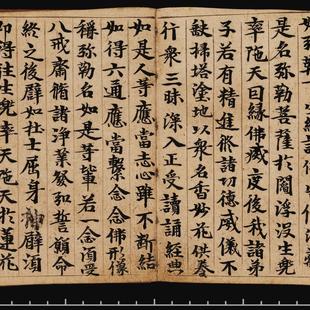 是名弥勒菩薩於閻浮沒生兜
率陁天因縁佛滅度後我諸弟
子若有精進脩諸功德威儀不
缺掃塔塗地以衆名香妙花供養
行衆三昧深入正受讀誦經典
如是人等應當志心雖不斷結
如得六通應當繫念念佛形像
稱弥勒名如是等輩若一念須受
八戒齋脩諸淨業發弘誓願命
終之後譬如壮士屈身臂須
即得往生兜率陁天於蓮花